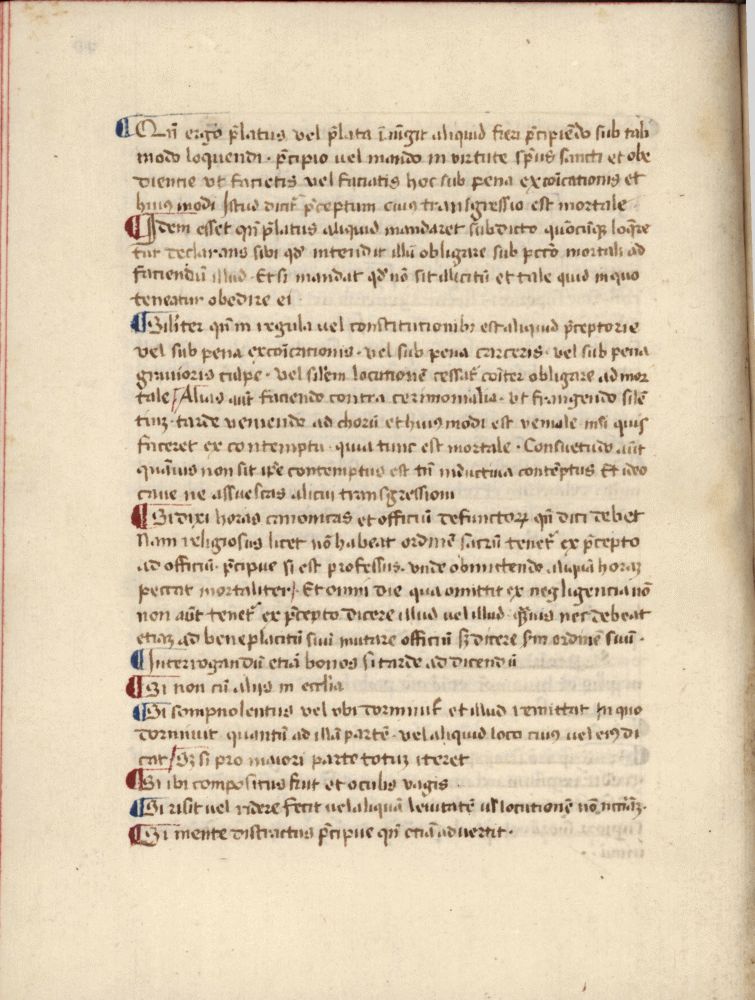 Qn̄ ergo p̄latus vel p̄lata īiūgit aliquid fieri p̄cipiēdo sub tali
modo loquendi · p̄cipio uel mando in virtute sp̄us sancti et obe
dientie vt facietis vel faciatis hoc sub pena excōicationis et
huius modi Istud dicit̄ p̄ceptum cuius transgressio est mortale
Idem esset qn̄ p̄latus aliquid mandaret subdicto quōcūq̨ loq̄re
tur declarans sibi qd̓ intendit illū obligare sub pccō mortali ad
faciendū illud · Et si mandat qd̓ nō sit illicitū et tale quid in quo
teneatur obedire ei ·
Silīter qn̄ in regula uel constitutionibꝰ est aliquid p̄ceptorie
vel sub pena excōicationis · vel sub pena carceris · vel sub pena
grauioris culpe · vel silem̄ locutionē cessat̄ cōiter obligare ad mor
tale / Alias aūt faciendo contra cerimonialia · vt frangendo silē
tiuꝫ · tarde veniendo ad chorū et huius modi est veniale nisi quis
faceret ex contemptu · quia tunc est mortale · Consuetudo aūt
quāuis non sit ip̄e contemptus est tn̄ inductiua contēptus Et ideo
caue ne assuescas alicui transgressioni
Si dixi horas canonicas et officiū defunctoꝝ qn̄ dici debet
Nam religiosus licet nō habeat ordinē sacrū tenet̄ ex p̄cepto
ad officiū · p̄cipue si est professus · vnde obmittendo aliquā horaꝫ
peccat mortaliter / · Et omni die qua omittit ex negligencia nō
non aūt tenet̄ ex p̄cepto dicere illud uel illud · q̄uis nec debeat
etiaꝫ ad beneplacitū suū mutare officiū sꝫ dicere sm̄ ordinē suū ·
Interrogandū etiā bonos si tarde ad dicendū
Si non cū alijs in ecclīa
Si sompnolentus vel vbi dormiuit̄ et illud remittat in quo
dormiuit quantū ad illā partē · vel aliquid loco cuius uel eiꝰ di
cat / Sꝫ si pro maiori parte totuꝫ iteret
Si ibi compositus fuit et oculis vagis ·
Si risit uel ridere fecit uel aliquā leuitatē ul̓ locutionē nō
Si mente distractus p̄cipue qn̄ etiā aduertit ·